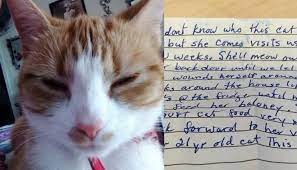 don't know who this cat
but she comes visits us
weeks. She'll meow ou
back door until we let
wounds herself aroun
ks around the house lo
s @ the fridge until
feed her baloney
cat food very
k forward to her v
21 yr old cat This